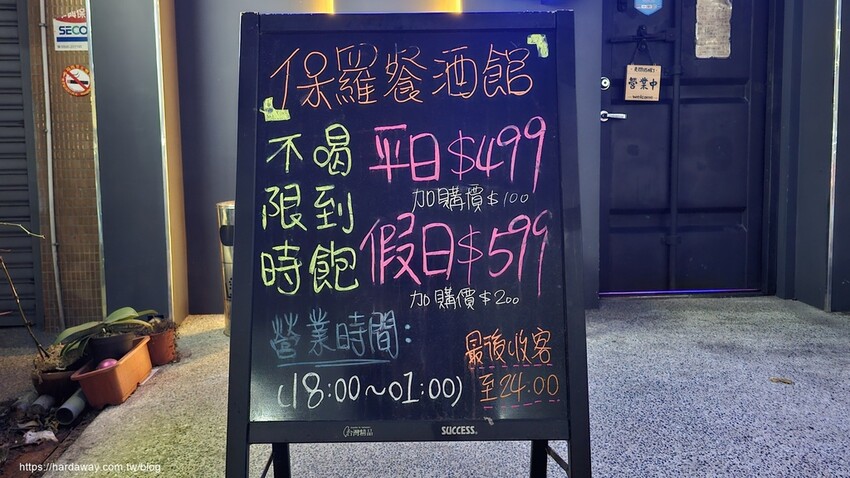 保羅餐酒館
不限時
喝到飽
平日$499
加購價$100
假日$599
加購價$200
營業時間:
(18:00~01:00)
最後收客
至24:00
台灣精品
SUCCESS
SECO
營業中
https://hardaway.com.tw/blog